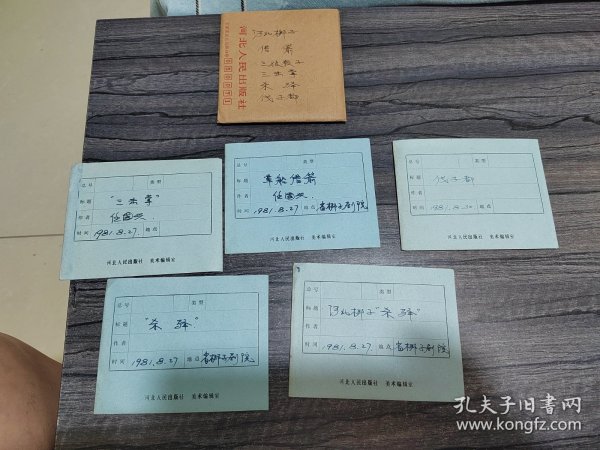 河北梆子
借箭
三娘教子
三出掌
杀驿
伐子都
河北人民出版社
总号 类型
标题 "三击掌"
作者 任国兴
时间 1981.8.27. 地点
河北人民出版社 美术编辑室
总号 类型
标题 草船借箭
作者 任国兴
时间 1981.8.27 地点 省梆子剧院
河北人民出版社 美术编辑室
总号 类型
标题 伐子都
作者
时间 1981.8.30. 地点
河北人民出版社 美术编辑室
总号 类型
标题 "杀驿"
作者
时间 1981.8.27 地点 省梆子剧院
河北人民出版社 美术编辑室
总号 类型
标题 河北梆子"杀驿"
作者
时间 1981.8.27. 地点 省梆子剧院
河北人民出版社 美术编辑室
孔夫子旧书网
www.kongfz.com